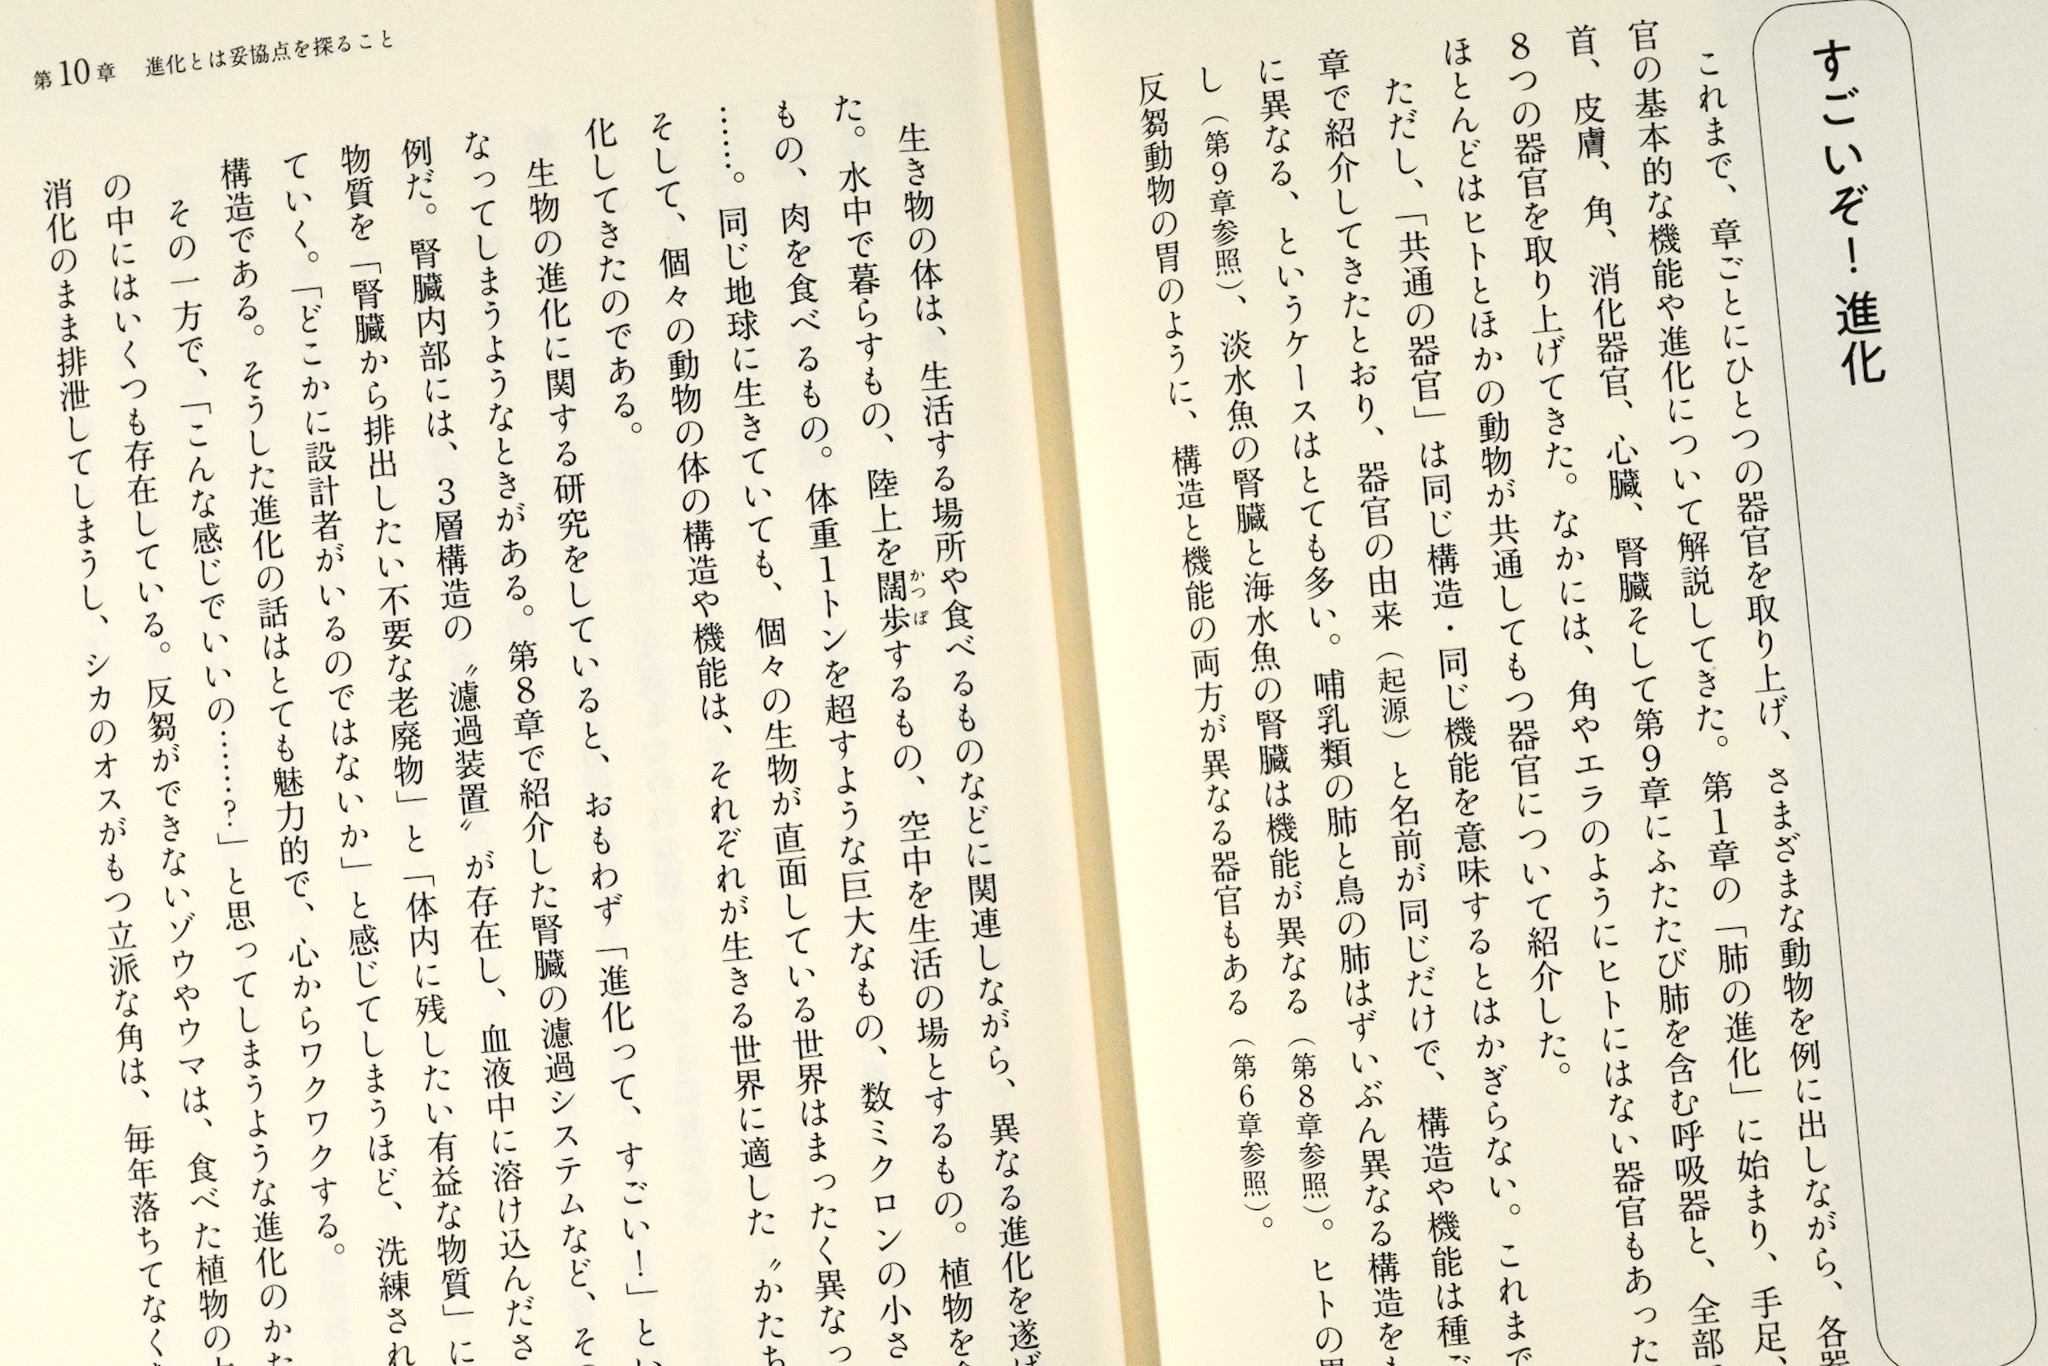 すごいぞ！進化
これまで、章ごとにひとつの器官を取り上げ、さまざまな動物を例に出しながら、各器
官の基本的な機能や進化について解説してきた。第1章の「肺の進化」に始まり、手足、
首、皮膚、角、消化器官、心臓、腎臓そして第9章にふたたび肺を含む呼吸器と、全部
8つの器官を取り上げてきた。なかには、角やエラのようにヒトにはない器官もあった
ほとんどはヒトとほかの動物が共通してもつ器官について紹介した。
ただし、「共通の器官」は同じ構造・同じ機能を意味するとはかぎらない。これまで
章で紹介してきたとおり、器官の由来（起源）と名前が同じだけで、構造や機能は種ご
に異なる、というケースはとても多い。哺乳類の肺と鳥の肺はずいぶん異なる構造を
し（第9章参照）、淡水魚の腎臓と海水魚の腎臓は機能が異なる（第8章参照）。ヒトの
反芻動物の胃のように、構造と機能の両方が異なる器官もある（第6章参照）。
第10章 進化とは妥協点を探ること
生き物の体は、生活する場所や食べるものなどに関連しながら、異なる進化を遂げ
た。水中で暮らすもの、陸上を闊歩かっぽするもの、空中を生活の場とするもの。植物を
もの、肉を食べるもの。体重1トンを超すような巨大なもの、数ミクロンの小さ
……。同じ地球に生きていても、個々の生物が直面している世界はまったく異なっ
そして、個々の動物の体の構造や機能は、それぞれが生きる世界に適した〝かたち
化してきたのである。
生物の進化に関する研究をしていると、おもわず「進化って、すごい！」とい
なってしまうようなときがある。第8章で紹介した腎臓の濾過システムなど、その
例だ。腎臓内部には、3層構造の〝濾過装置〟が存在し、血液中に溶け込んださ
物質を「腎臓から排出したい不要な老廃物」と「体内に残したい有益な物質」に
ていく。「どこかに設計者がいるのではないか」と感じてしまうほど、洗練され
構造である。そうした進化の話はとても魅力的で、心からワクワクする。
その一方で、「こんな感じでいいの……？」と思ってしまうような進化のかた
の中にはいくつも存在している。反芻ができないゾウやウマは、食べた植物の
消化のまま排泄してしまうし、シカのオスがもつ立派な角は、毎年落ちてなく